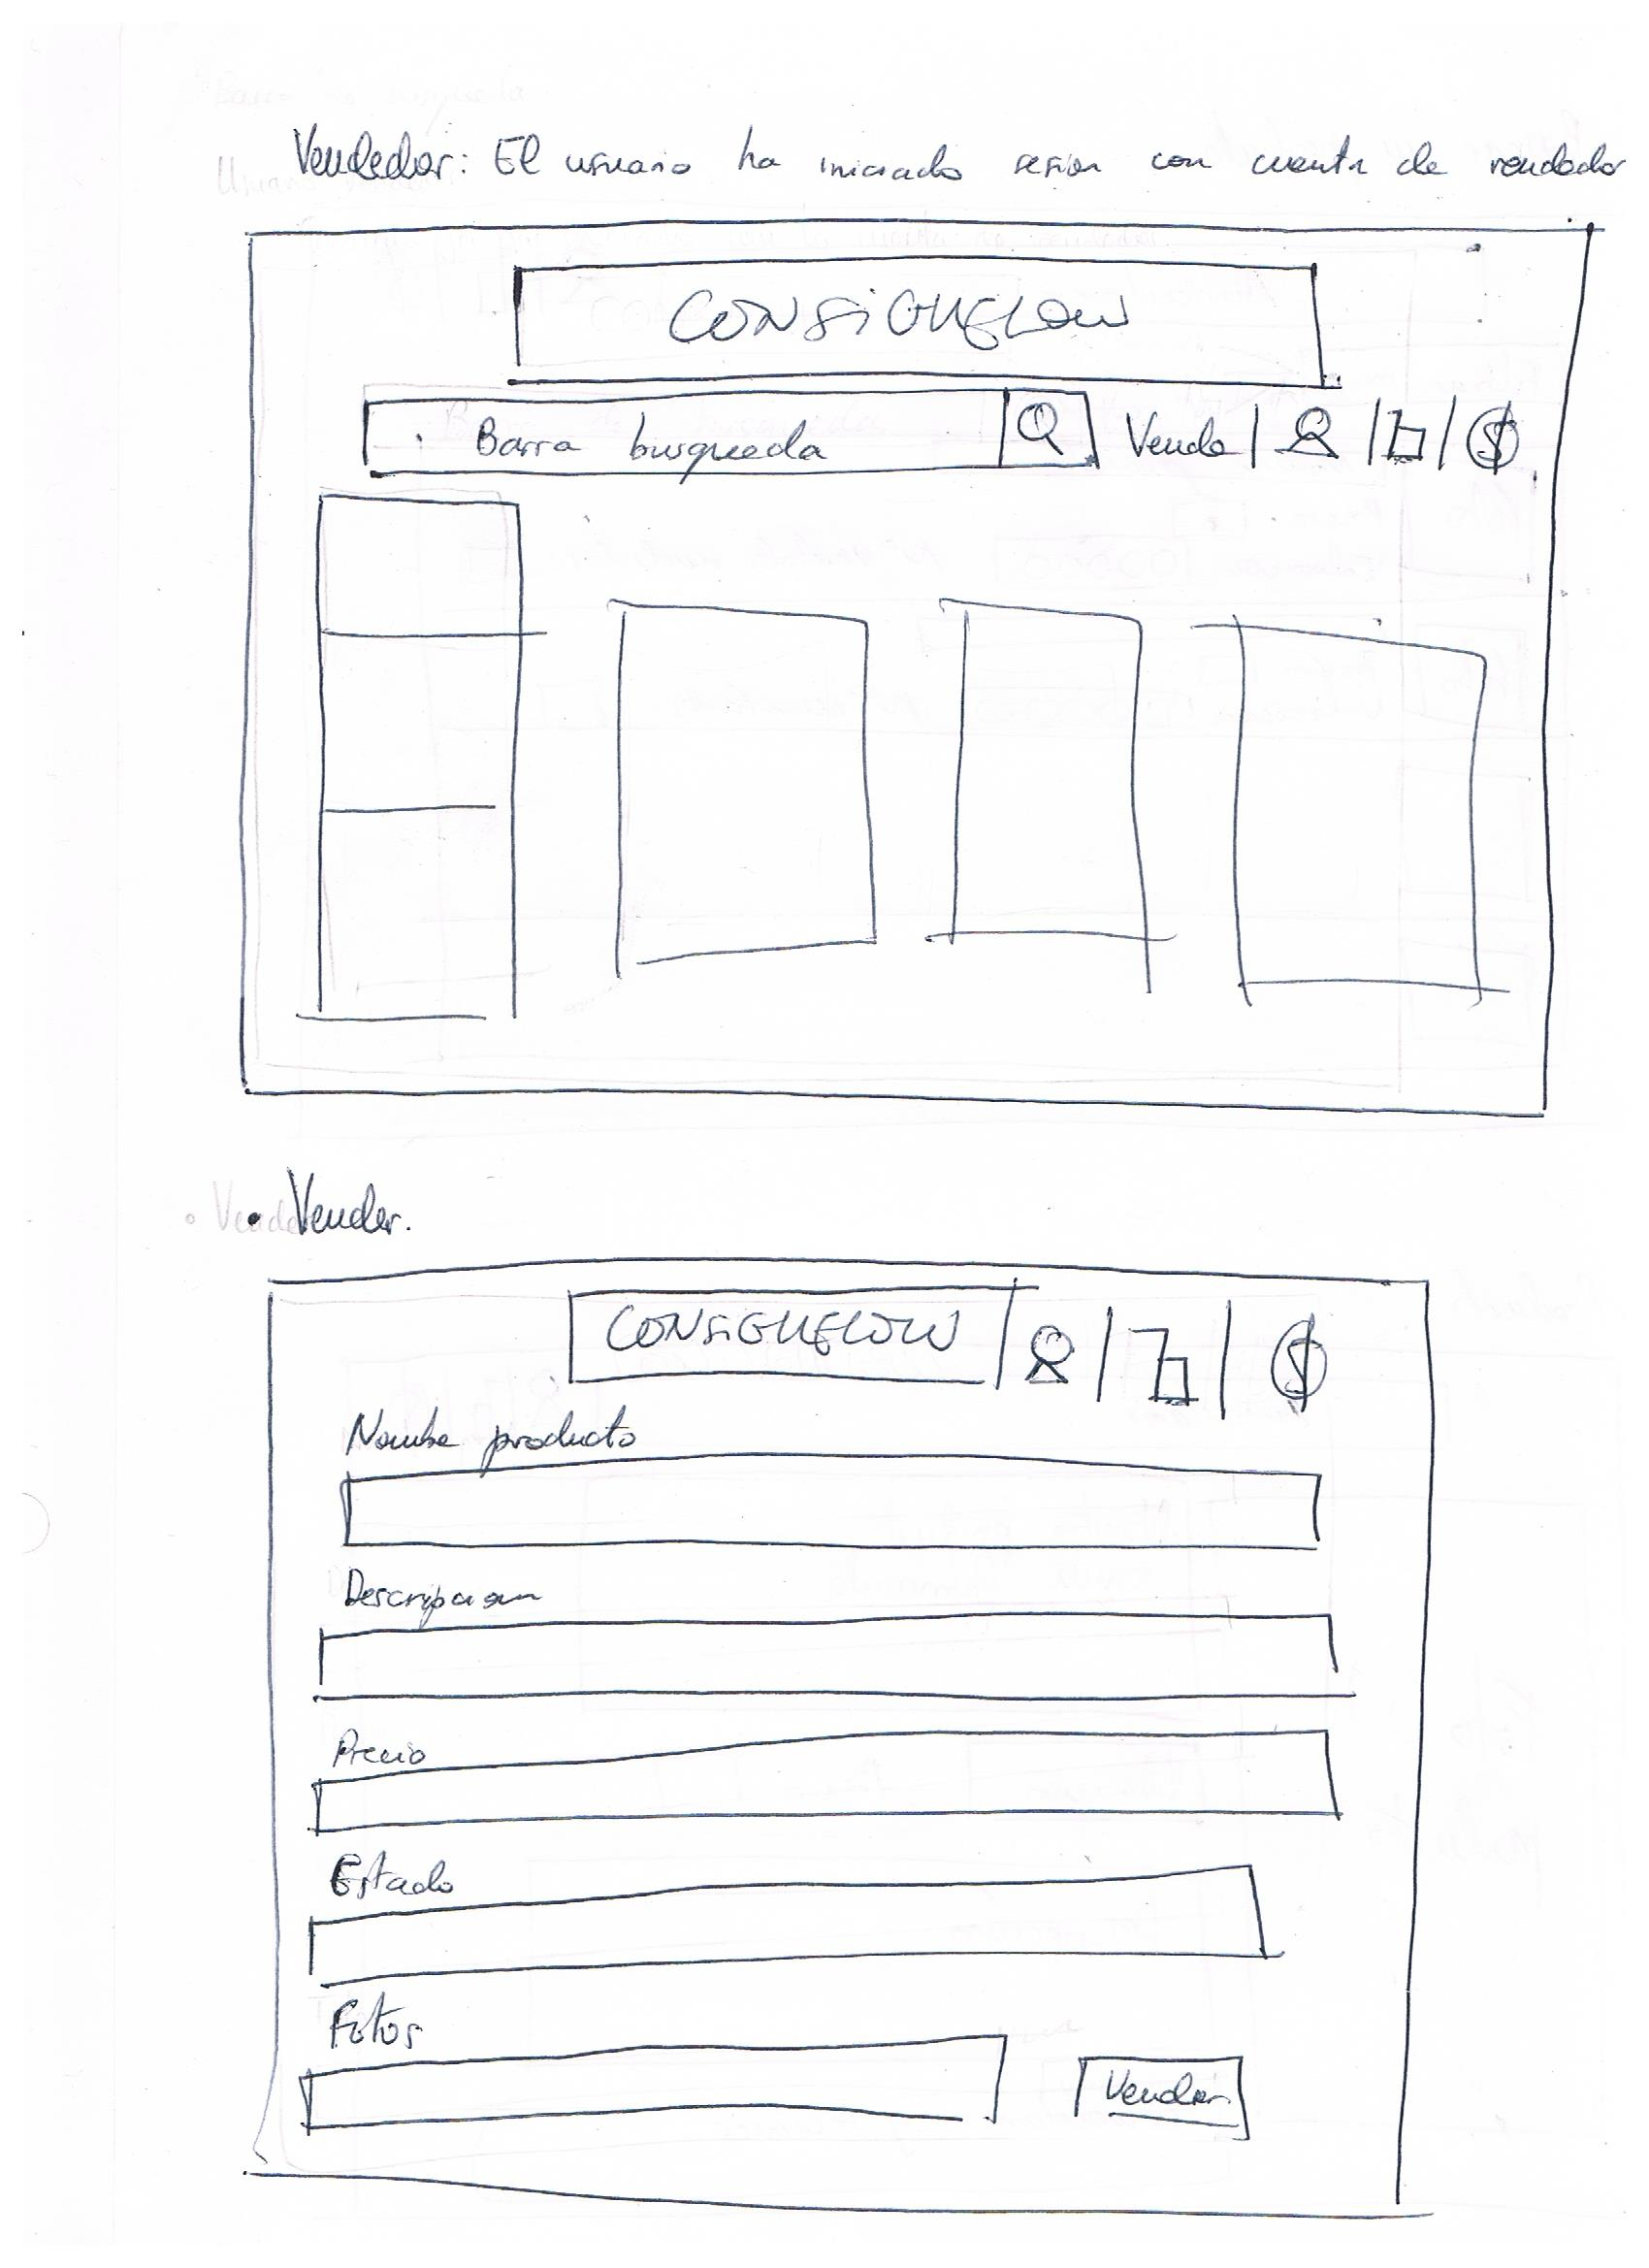 Vendedor: El usuario ha iniciado sesion con cuenta de vendedor
CONSIGUELOW
Barra busqueda
Vende
$
• Vender.
CONSIGUELOW
$
Nombre producto
Descripcion
Precio
Estado
Fotos
Vender